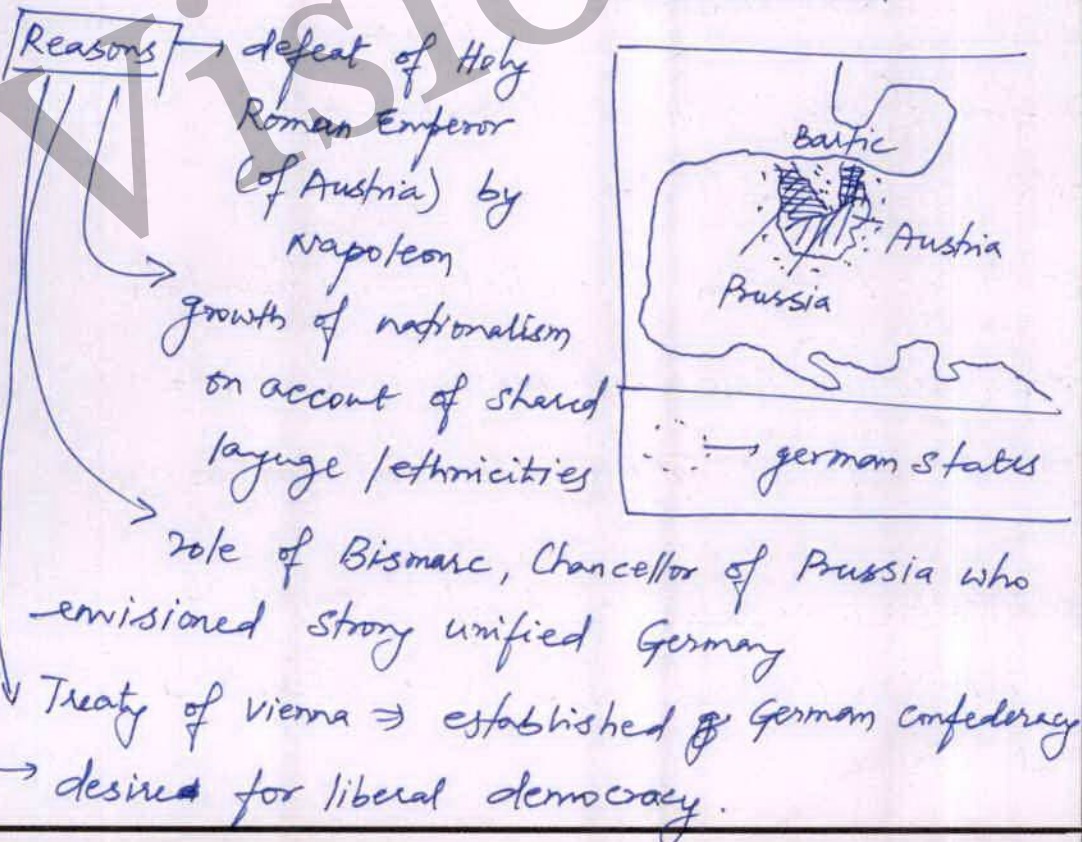 Reasons → defeat of Holy
Roman Emperor
(of Austria) by
Napoleon
growth of nationalism
on account of shared
layuge / ethnicities
role of Bismarc, Chancellor of Prussia who
envisioned strong unified Germany
Treaty of Vienna ⇒ established German confederacy
→ desire for liberal democracy.
Baltic
Austria
Prussia
→ german states
Visio